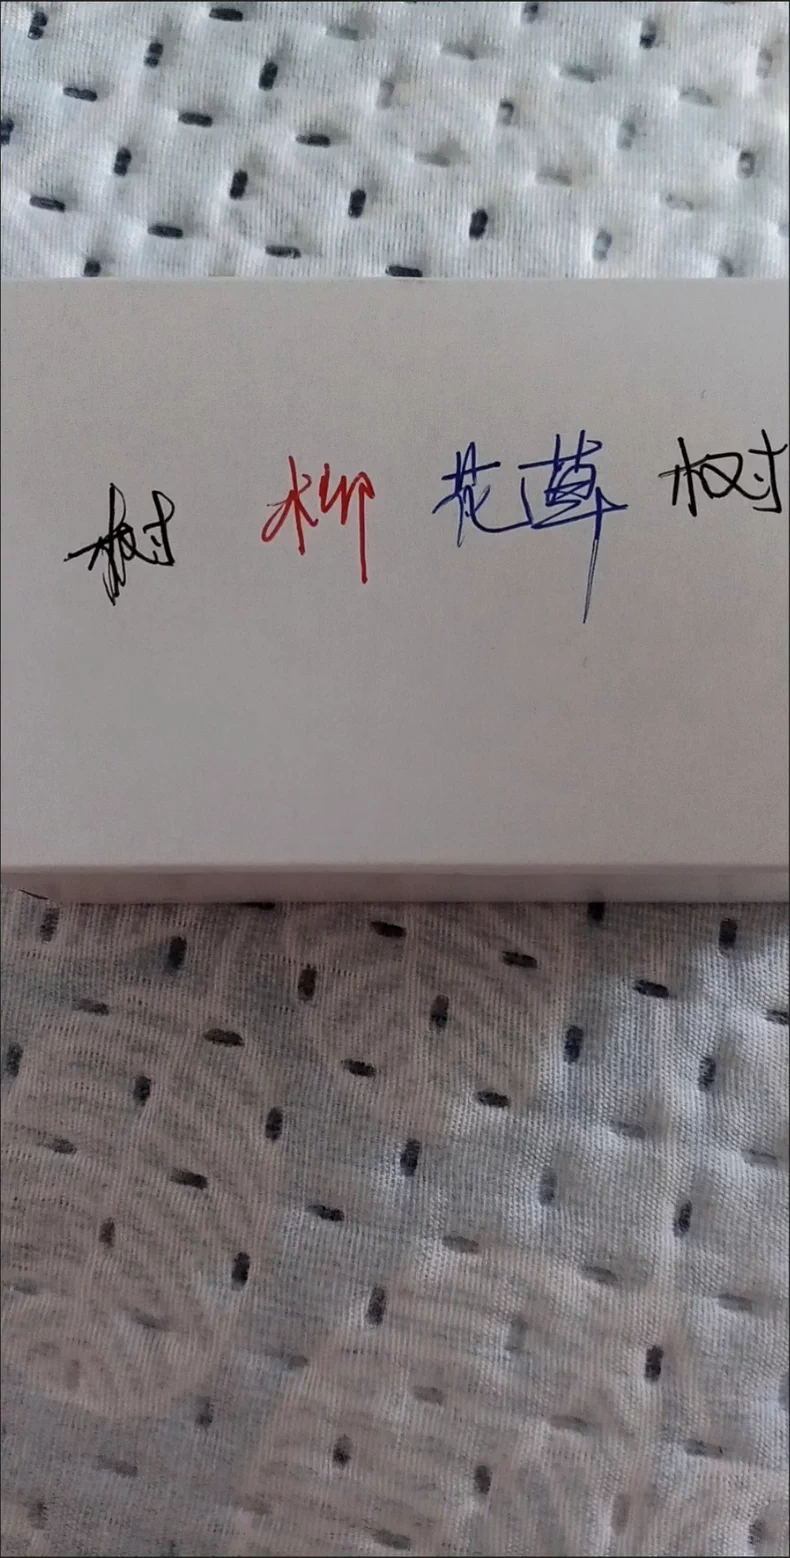 树 柳 花草 树